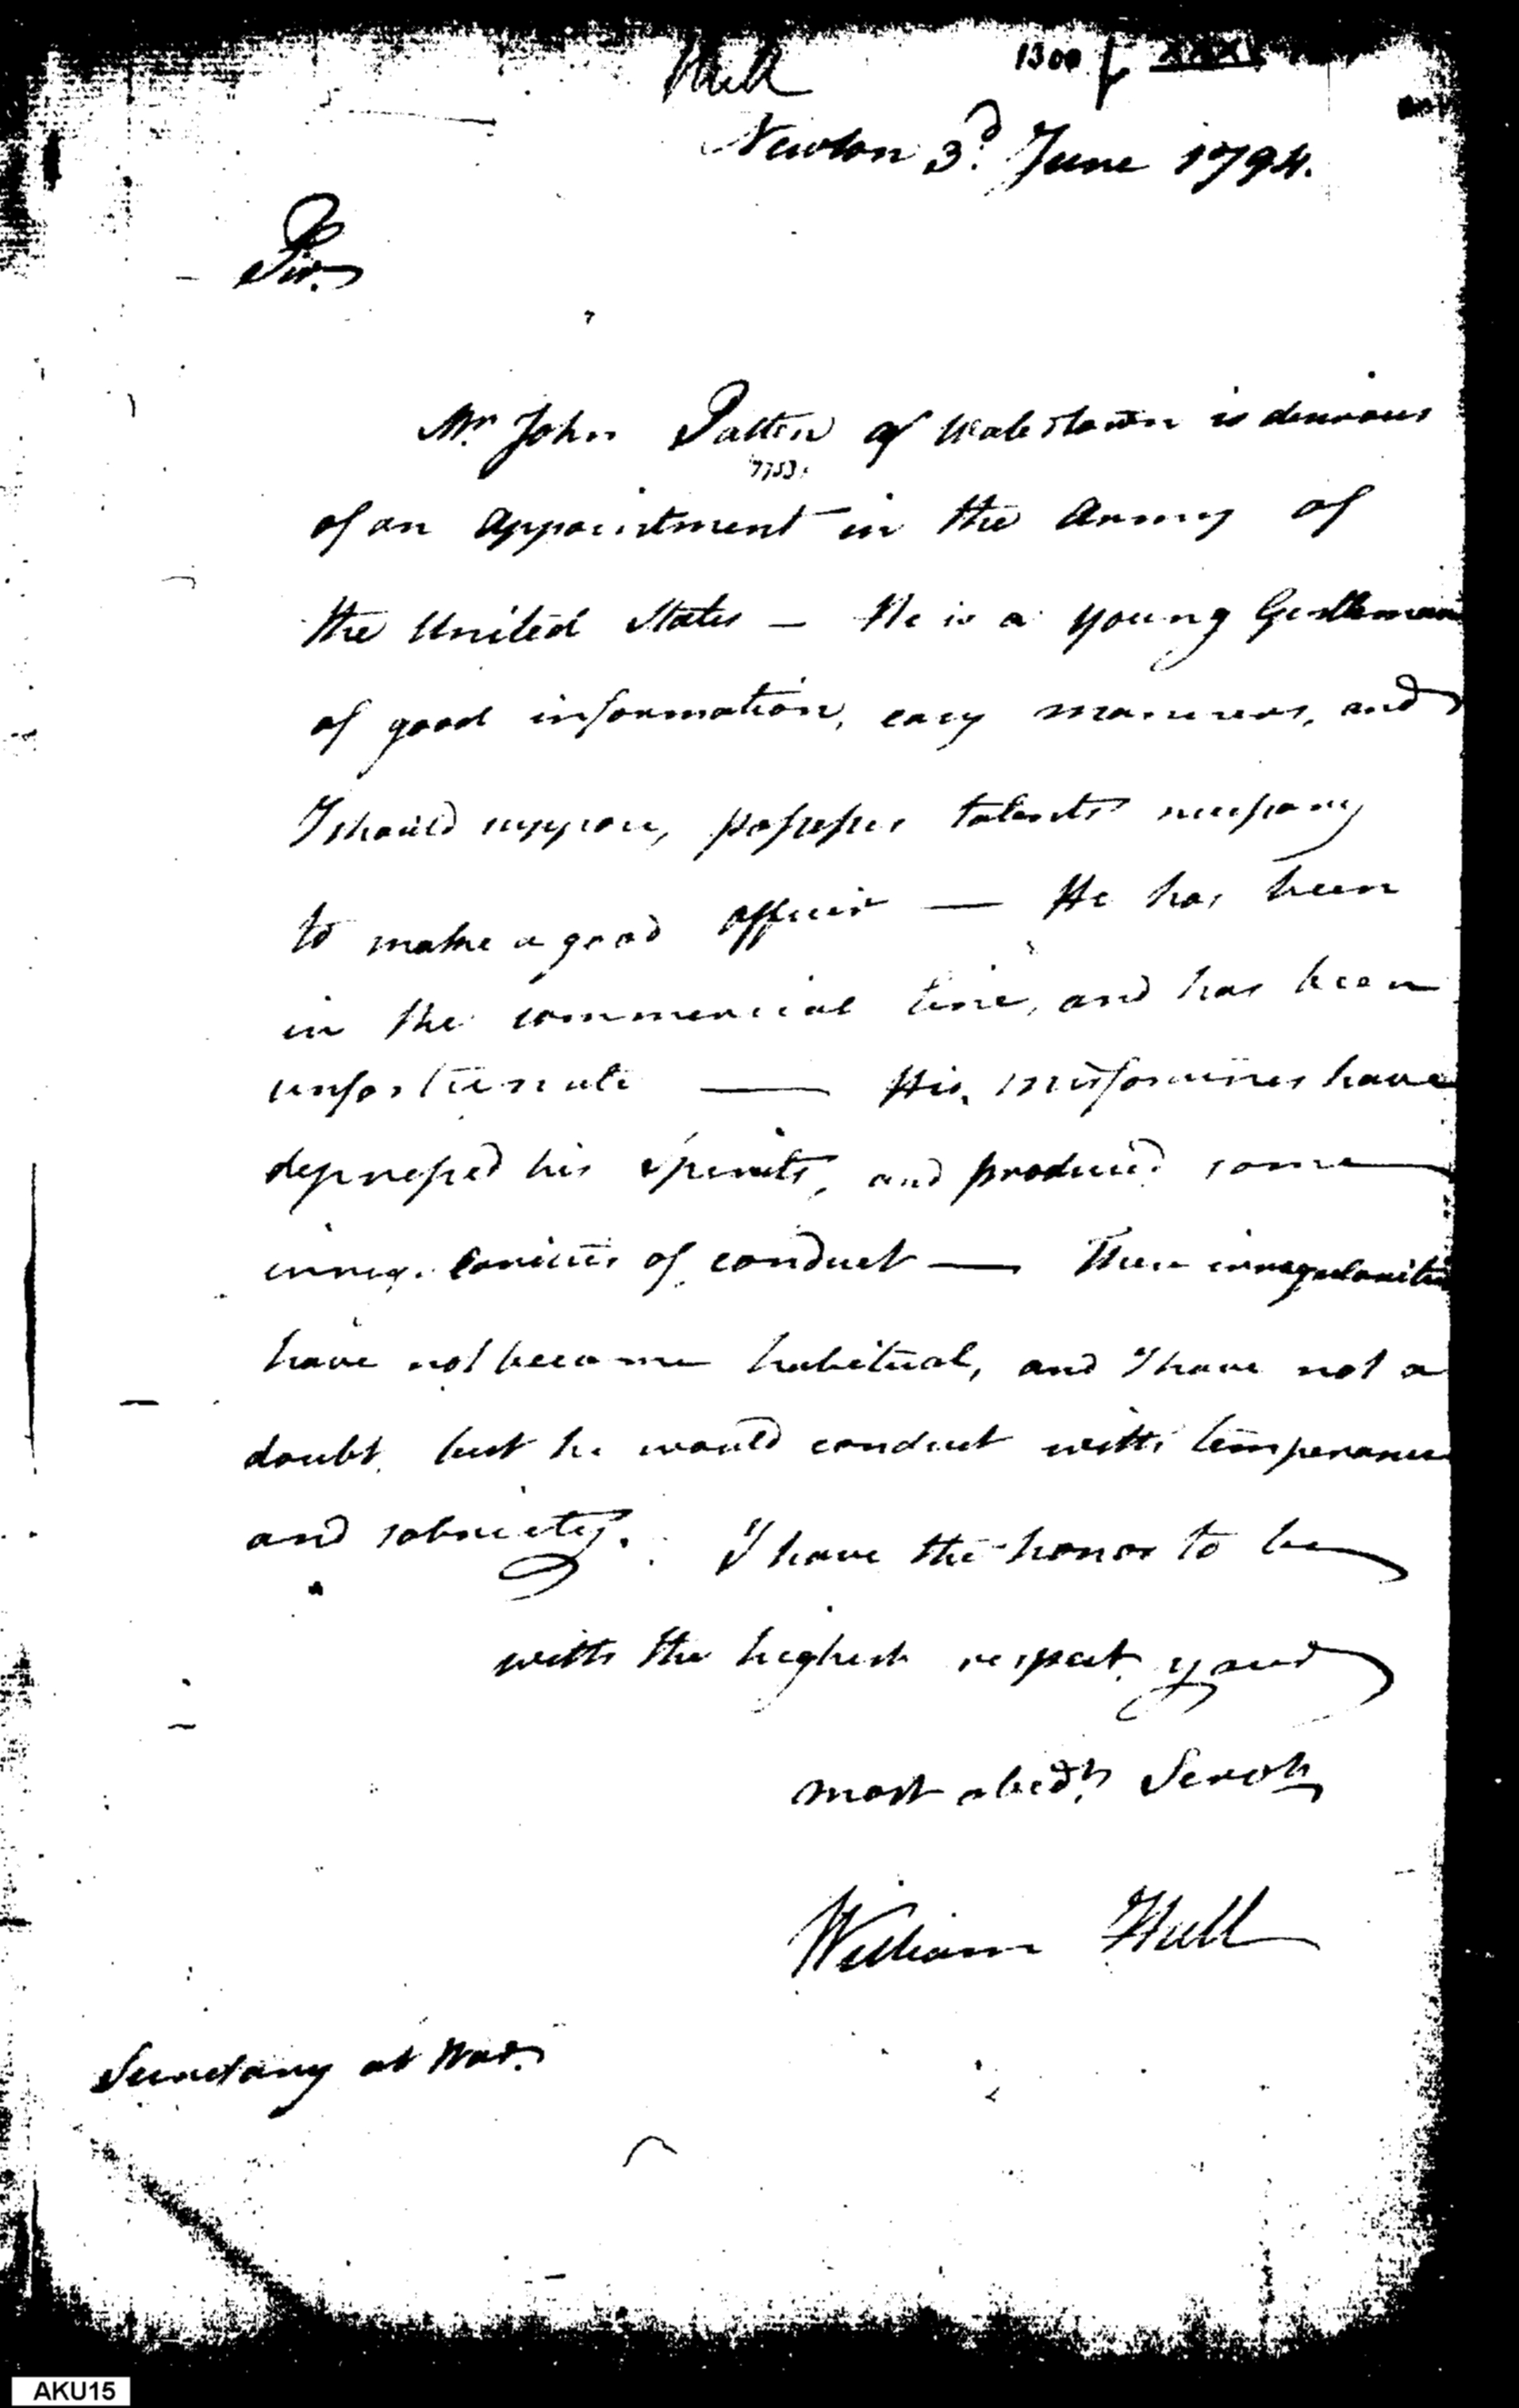 Hull
1300
Newton 3.d June 1794.
Sir.
Mr. John Patten of Watertown is desirous
7753.
of an appointment in the Army of
the United States — He is a young Gentleman
of good information, easy manners, and
I should suppose, possesses talents necessary
to make a good officer — He has been
in the commercial line, and has been
unfortunate — His misfortunes have
depressed his spirits, and produced some
irregularities of conduct — These irregularities
have not become habitual, and I have not a
doubt but he would conduct with temperance
and sobriety. I have the honor to be
with the highest respect your
most obedt. Servt.
William Hull
Secretary at War.
AKU15